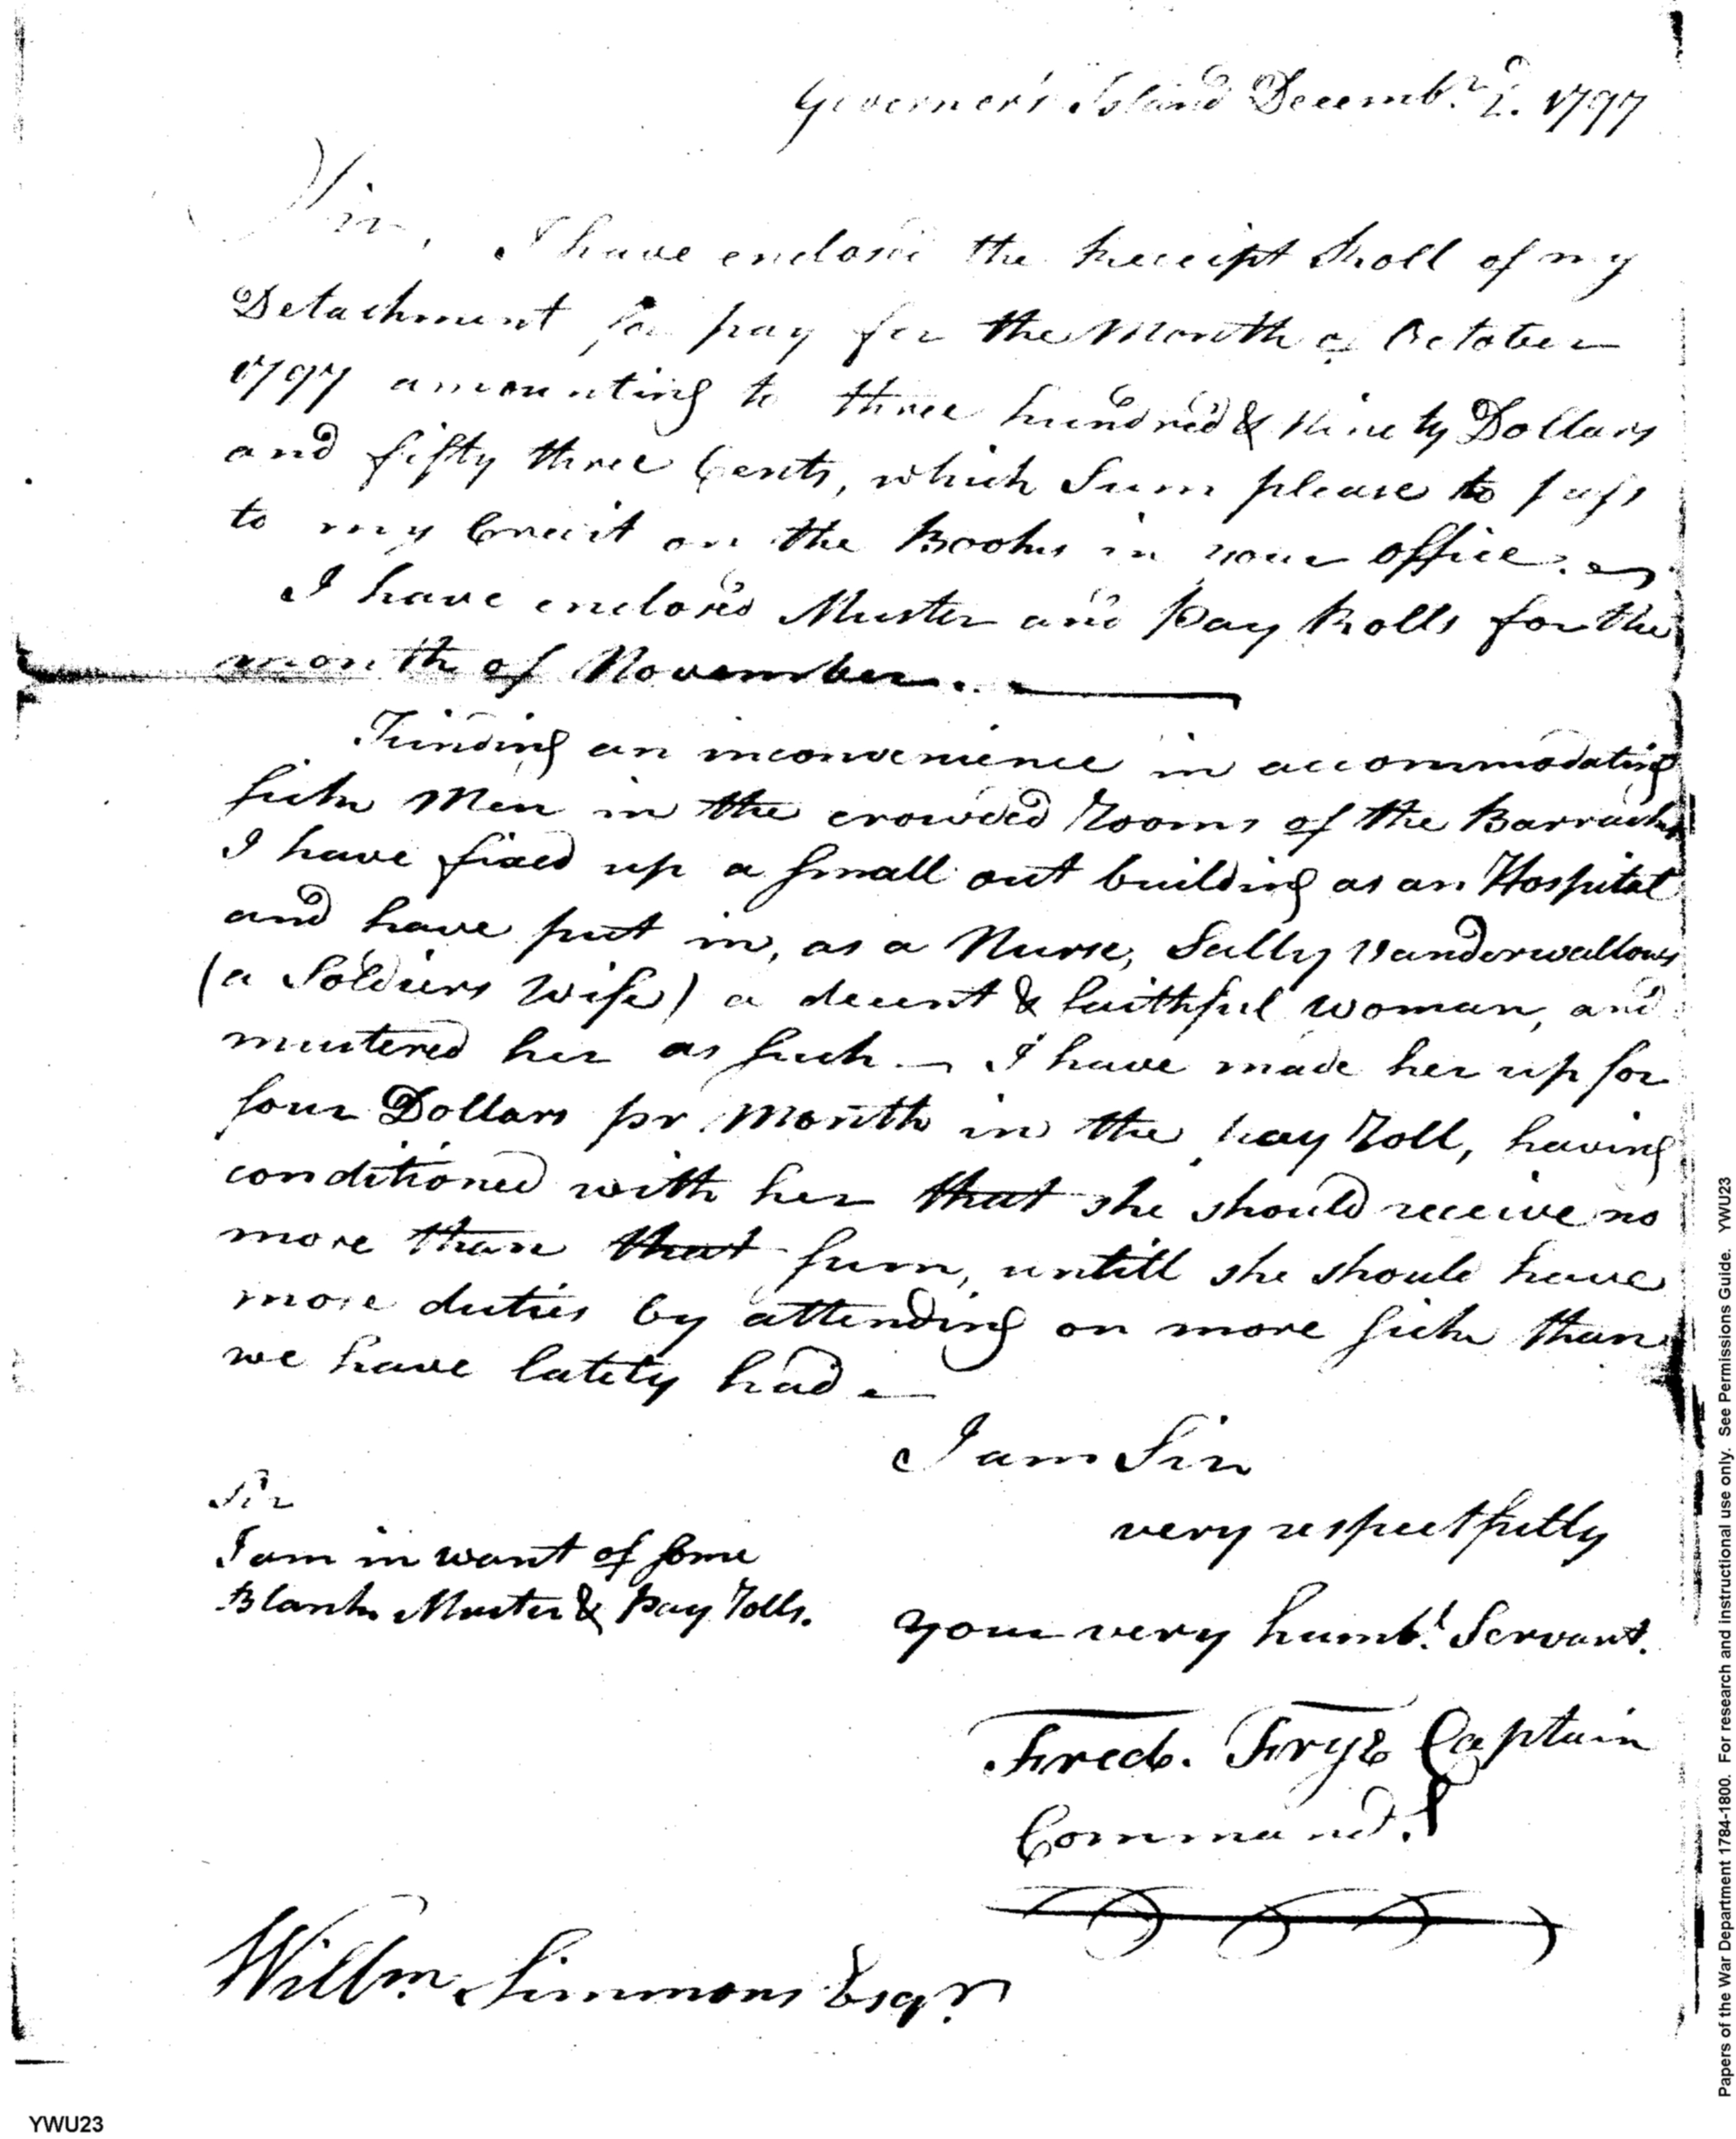 Governer's Island Decembr. 2d. 1797
Sir,
I have enclos'd the Receipt Roll of my
Detachment for pay for the Month of October
1797 amounting to three hundred & Ninety Dollars
and fifty three Cents, which Sum please to pass
to my Credit on the Books in your office.
I have enclos'd Muster and Pay Rolls for the
month of November.
Finding an inconvenience in accommodating
sick Men in the crowded Rooms of the Barracks
I have fixed up a small out building as an Hospital
and have put in, as a Nurse, Sally Vanderwallows
(a Soldiers Wife) a decent & faithful woman, and
mustered her as such — I have made her up for
four Dollars pr Month in the pay Roll, having
conditioned with her that she should receive no
more than that sum, untill she should have
more duties by attending on more sick than
we have lately had —
I am Sir
very respectfully
your very humbl. Servant.
Fred. Frye Captain
Command.t
Sir
I am in want of some
Blank Muster & Pay Rolls.
Willm. Simmons Esqr.
YWU23
Papers of the War Department 1784-1800. For research and instructional use only. See Permissions Guide. YWU23